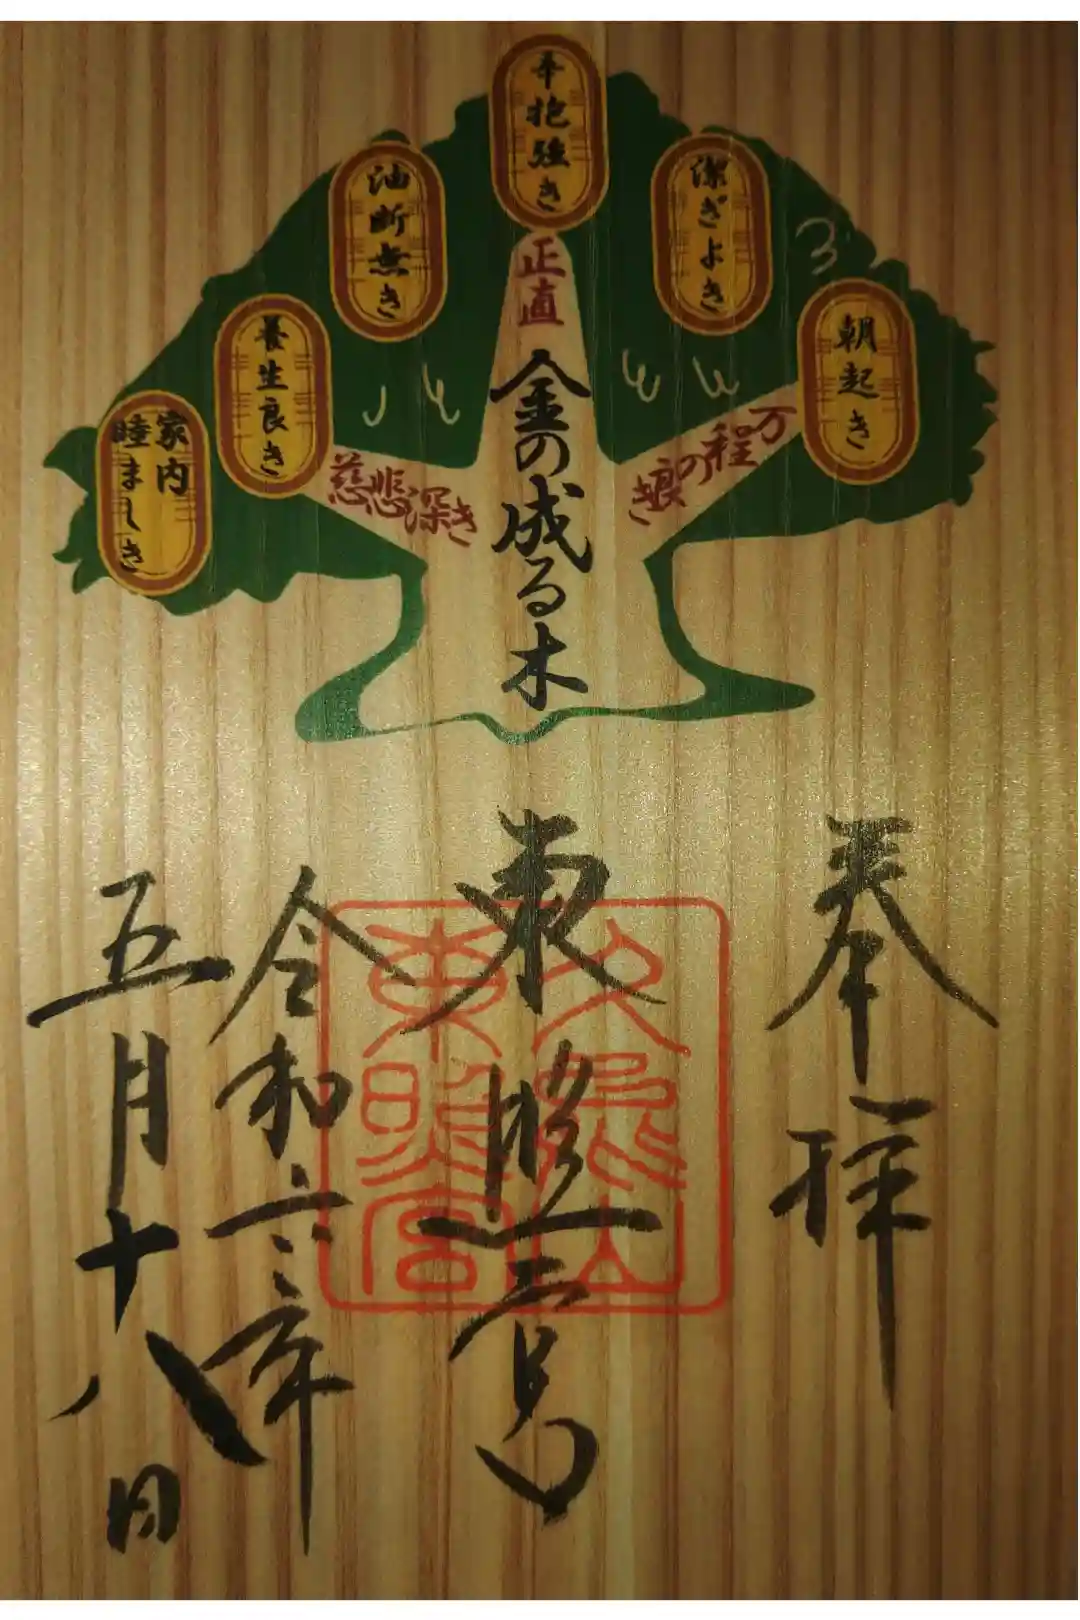 朝起き
潔ぎよき
辛抱強き
油断無き
養生良き
家内
睦ましき
正直
万程の
慈悲深き
金の成る木
奉拝
東照宮
久能山
東照宮
令和六年
五月十八日